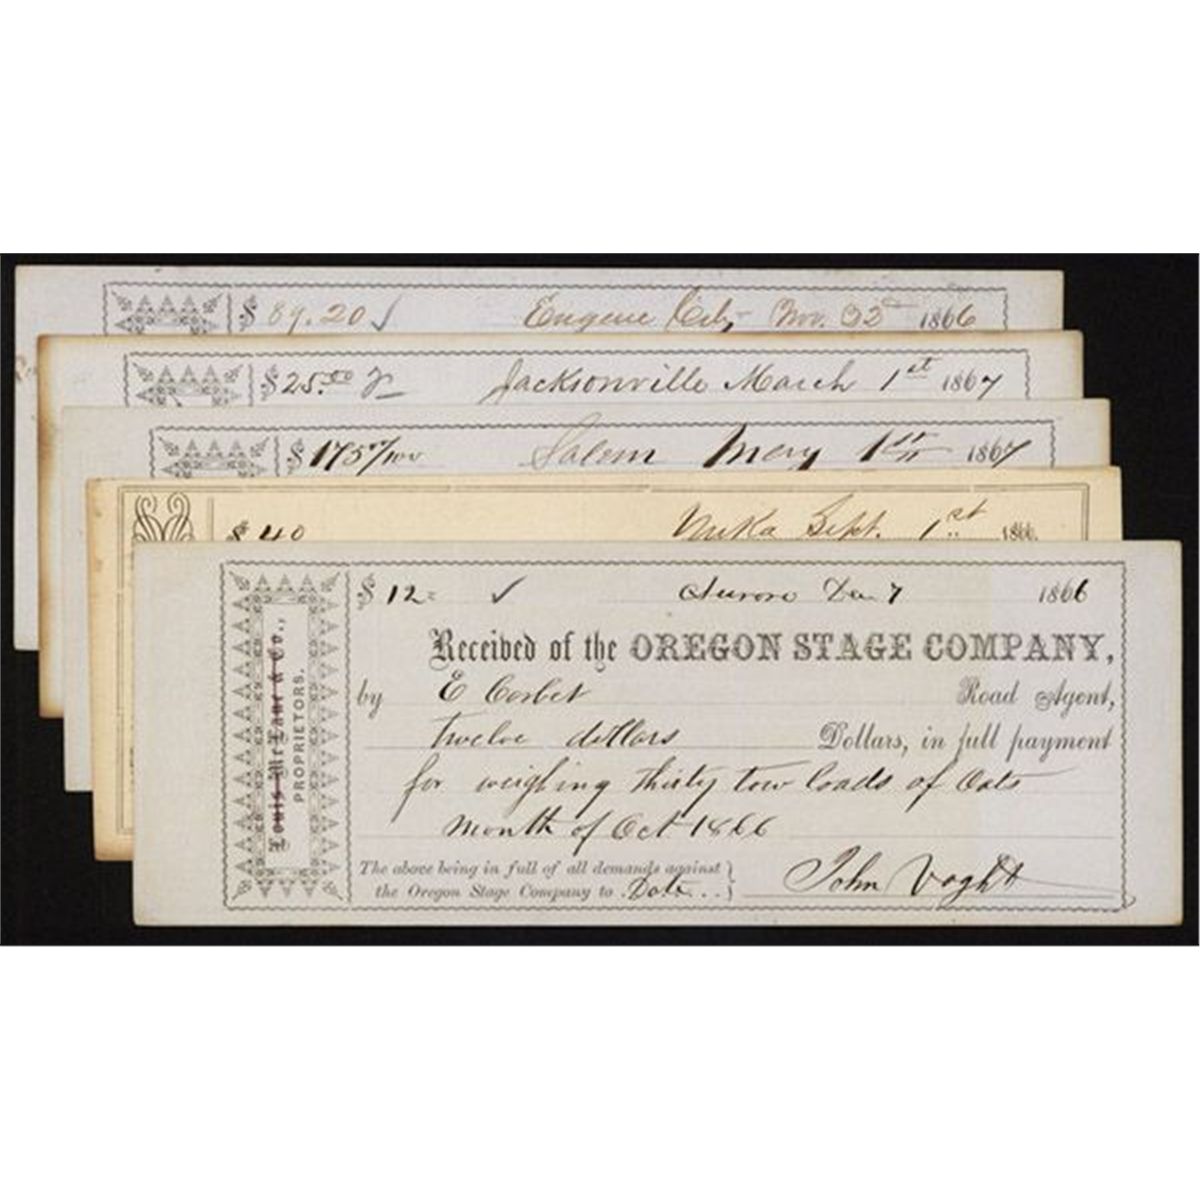 $ 89.20 Eugene City Nov. 22d 1866
$ 25.00 Jacksonville March 1st 1867
$ 175 00/100 Salem May 1st 1867
$ 40 Yreka Sept. 1st 1866
$ 12= Aurora Dec 7 1866
Received of the OREGON STAGE COMPANY,
by E Corbet Road Agent,
twelve dollars Dollars, in full payment
for weighing thirty tow loads of Oats
Month of Oct 1866
The above being in full of all demands against
the Oregon Stage Company to Date
John Voght
Louis McLane & Co.,
PROPRIETORS.